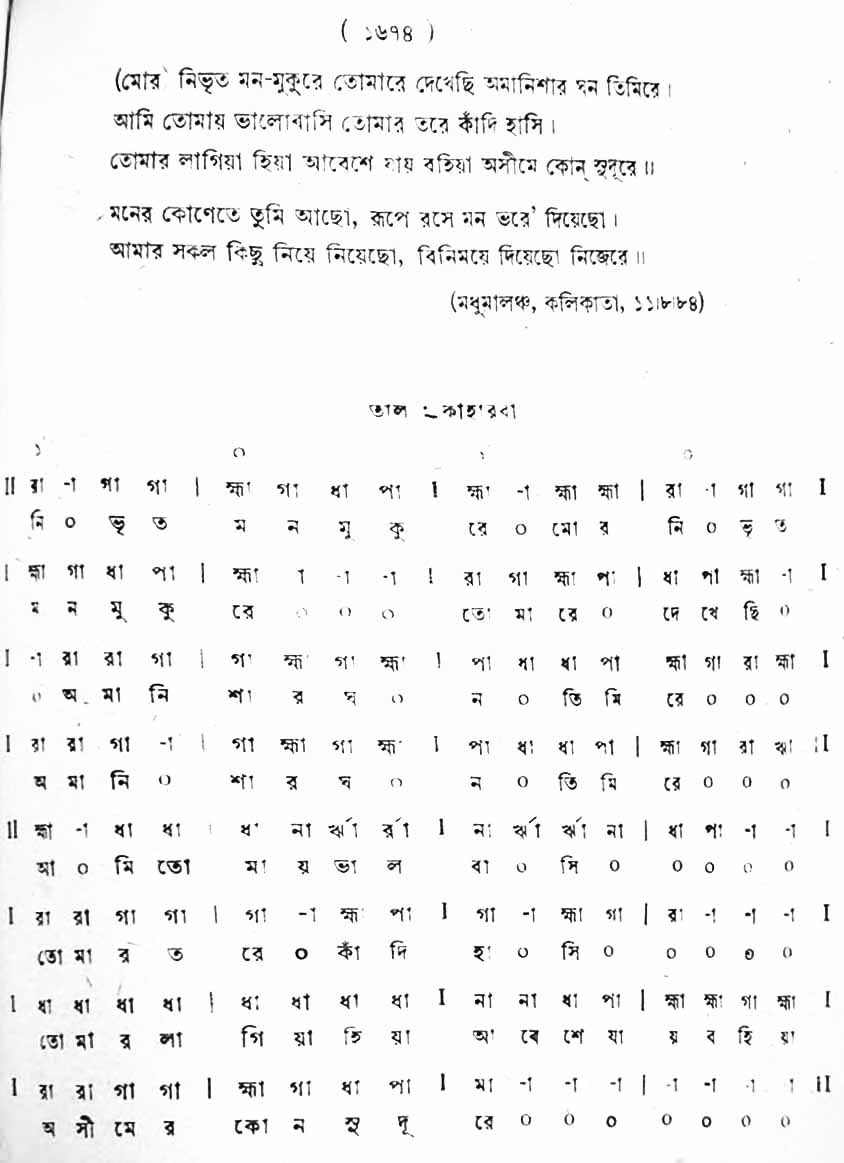 ( ১৬৭৪ )
(মোর নিভৃত মন-মুকুরে তোমারে দেখেছি অমানিশার ঘন তিমিরে।
আমি তোমায় ভালোবাসি তোমার তরে কাঁদি হাসি।
তোমার লাগিয়া হিয়া আবেশে যায় বহিয়া অসীমে কোন্ সুদূরে॥
মনের কোণেতে তুমি আছো, রূপে রসে মন ভরে' দিয়েছো।
আমার সকল কিছু নিয়ে নিয়েছো, বিনিময়ে দিয়েছো নিজেরে॥
(মধুমালঞ্চ, কলিকাতা, ১১।৮।৮৪)
তাল :- কাহারবা
১ ০ ১ ০
II রা -া গা গা | হ্মা গা ধা পা I হ্মা -া হ্মা হ্মা | রা -া গা গা I
নি ০ ভৃ ত ম ন মু কু রে ০ মো র নি ০ ভৃ ত
I হ্মা গা ধা পা | হ্মা া -া -া I রা গা হ্মা পা | ধা পা হ্মা -া I
ম ন মু কু রে ০ ০ ০ তো মা রে ০ দে খে ছি ০
I -া রা রা গা | গা হ্মা গা হ্মা I পা ধা ধা পা হ্মা গা রা হ্মা I
০ অ মা নি শা র ঘ ০ ন ০ তি মি রে ০ ০ ০
I রা রা গা -া | গা হ্মা গা হ্মা I পা ধা ধা পা | হ্মা গা রা ঋা :I
অ মা নি ০ শা র ঘ ০ ন ০ তি মি রে ০ ০ ০
II হ্মা -া ধা ধা | ধা না র্ঋা র্রা I না র্ঋা র্ঋা না | ধা পা -া -া I
আ ০ মি তো মা য় ভা ল বা ০ সি ০ ০ ০ ০ ০
I রা রা গা গা | গা -া হ্মা পা I গা -া হ্মা গা | রা -া -া -া I
তো মা র ত রে ০ কাঁ দি হা ০ সি ০ ০ ০ ০ ০
I ধা ধা ধা ধা | ধা ধা ধা ধা I না না ধা পা | হ্মা হ্মা গা হ্মা I
তো মা র লা গি য়া হি য়া আ বে শে যা য় ব হি য়া
I রা রা গা গা | হ্মা গা ধা পা I মা -া -া -া | -া -া -া া II
অ সী মে র কো ন সু দূ রে ০ ০ ০ ০ ০ ০ ০